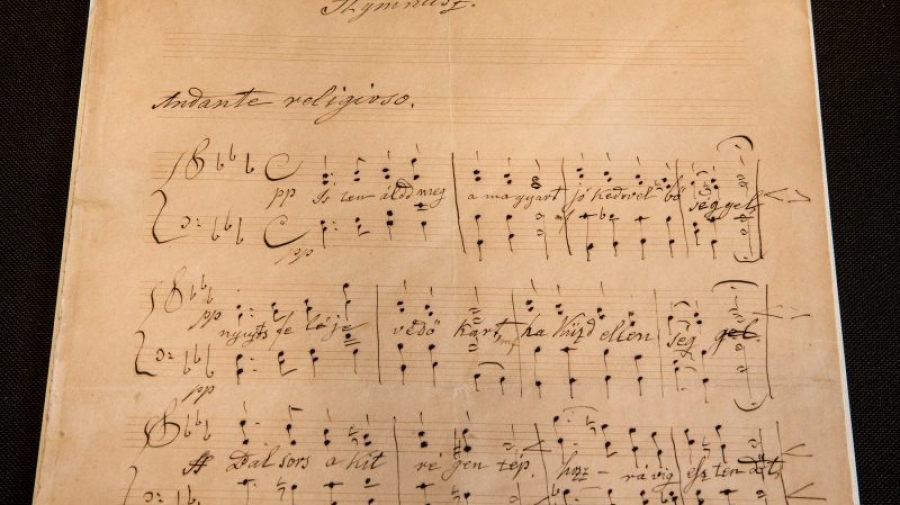 Hymnusz.
Andante religioso.
pp Is ten áldd meg a magyart jó kedvvel bő séggel
pp
pp nyujts fe lé je védő kart, mf ha küzd ellen ség gel.
pp
ff Bal sors a kit ré gen tép, hozz - rá víg esz ten dőt,